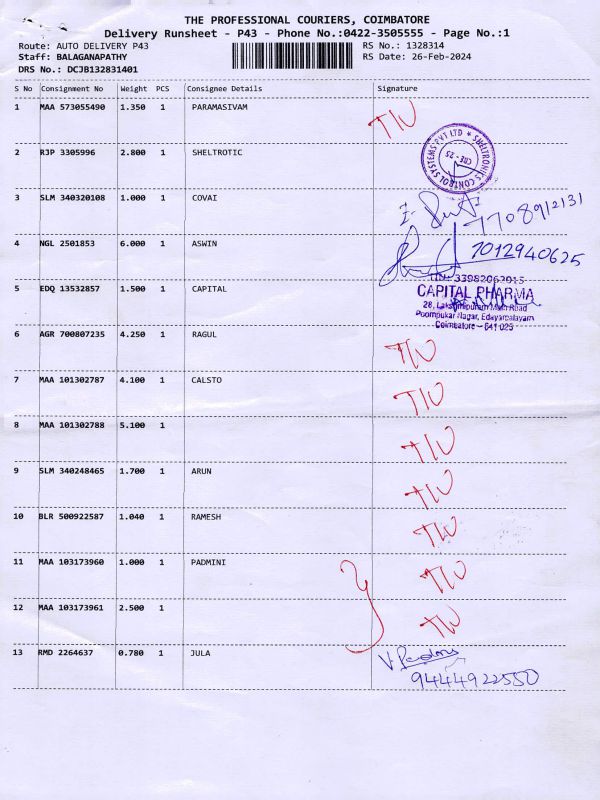 THE PROFESSIONAL COURIERS, COIMBATORE
Delivery Runsheet - P43 - Phone No.:0422-3505555 - Page No.:1
Route: AUTO DELIVERY P43 RS No.: 1328314
Staff: BALAGANAPATHY RS Date: 26-Feb-2024
DRS No.: DCJB132831401
S No Consignment No Weight PCS Consignee Details Signature
1 MAA 573055490 1.350 1 PARAMASIVAM
2 RJP 3305996 2.800 1 SHELTROTIC
SHELTRONICS CONTROL SYSTEMS PVT LTD
CBE - 25
3 SLM 340320108 1.000 1 COVAI
7708912131
4 NGL 2501853 6.000 1 ASWIN
7012940625
5 EDQ 13532857 1.500 1 CAPITAL
33982062915
CAPITAL PHARMA
28, Lakshmipuram Main Road
Poompukar Nagar, Edayarpalayam
Coimbatore - 641 025
6 AGR 700807235 4.250 1 RAGUL
7 MAA 101302787 4.100 1 CALSTO
8 MAA 101302788 5.100 1
9 SLM 340248465 1.700 1 ARUN
10 BLR 500922587 1.040 1 RAMESH
11 MAA 103173960 1.000 1 PADMINI
12 MAA 103173961 2.500 1
13 RMD 2264637 0.780 1 JULA
9444922550